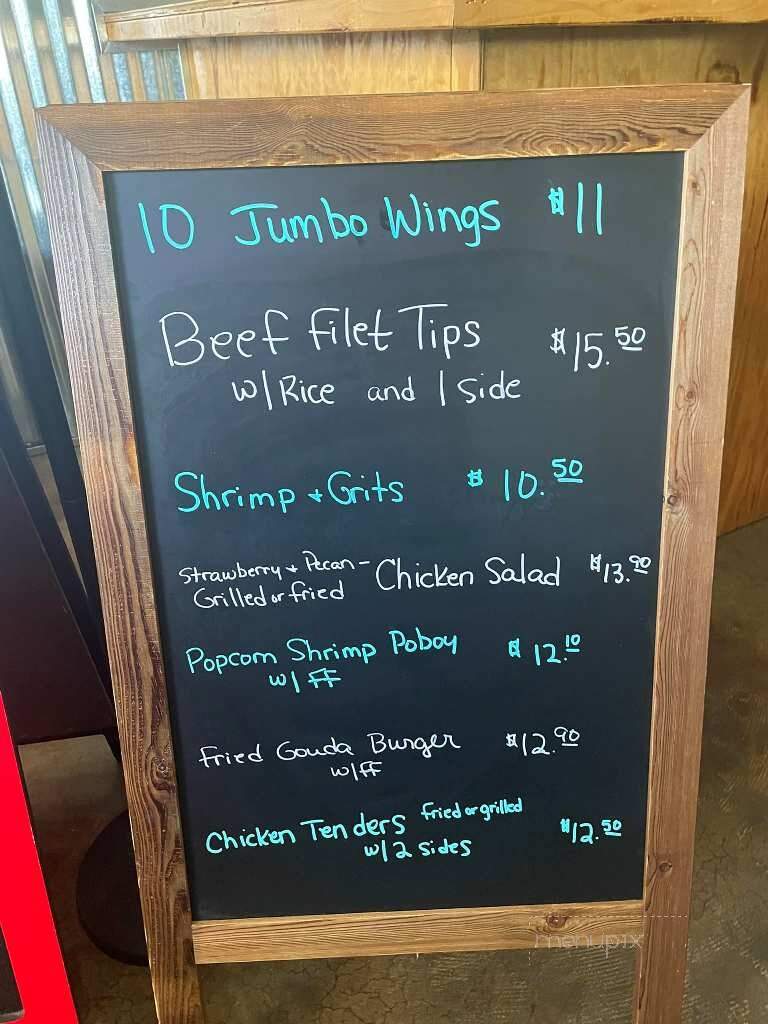 10 Jumbo Wings $11
Beef Filet Tips $15.50
w/ Rice and 1 Side
Shrimp + Grits $10.50
Strawberry + Pecan - Chicken Salad $13.90
Grilled or fried
Popcorn Shrimp Poboy $12.10
w/ ff
Fried Gouda Burger $12.90
w/ff
Chicken Tenders fried or grilled $12.50
w/2 sides
menupix